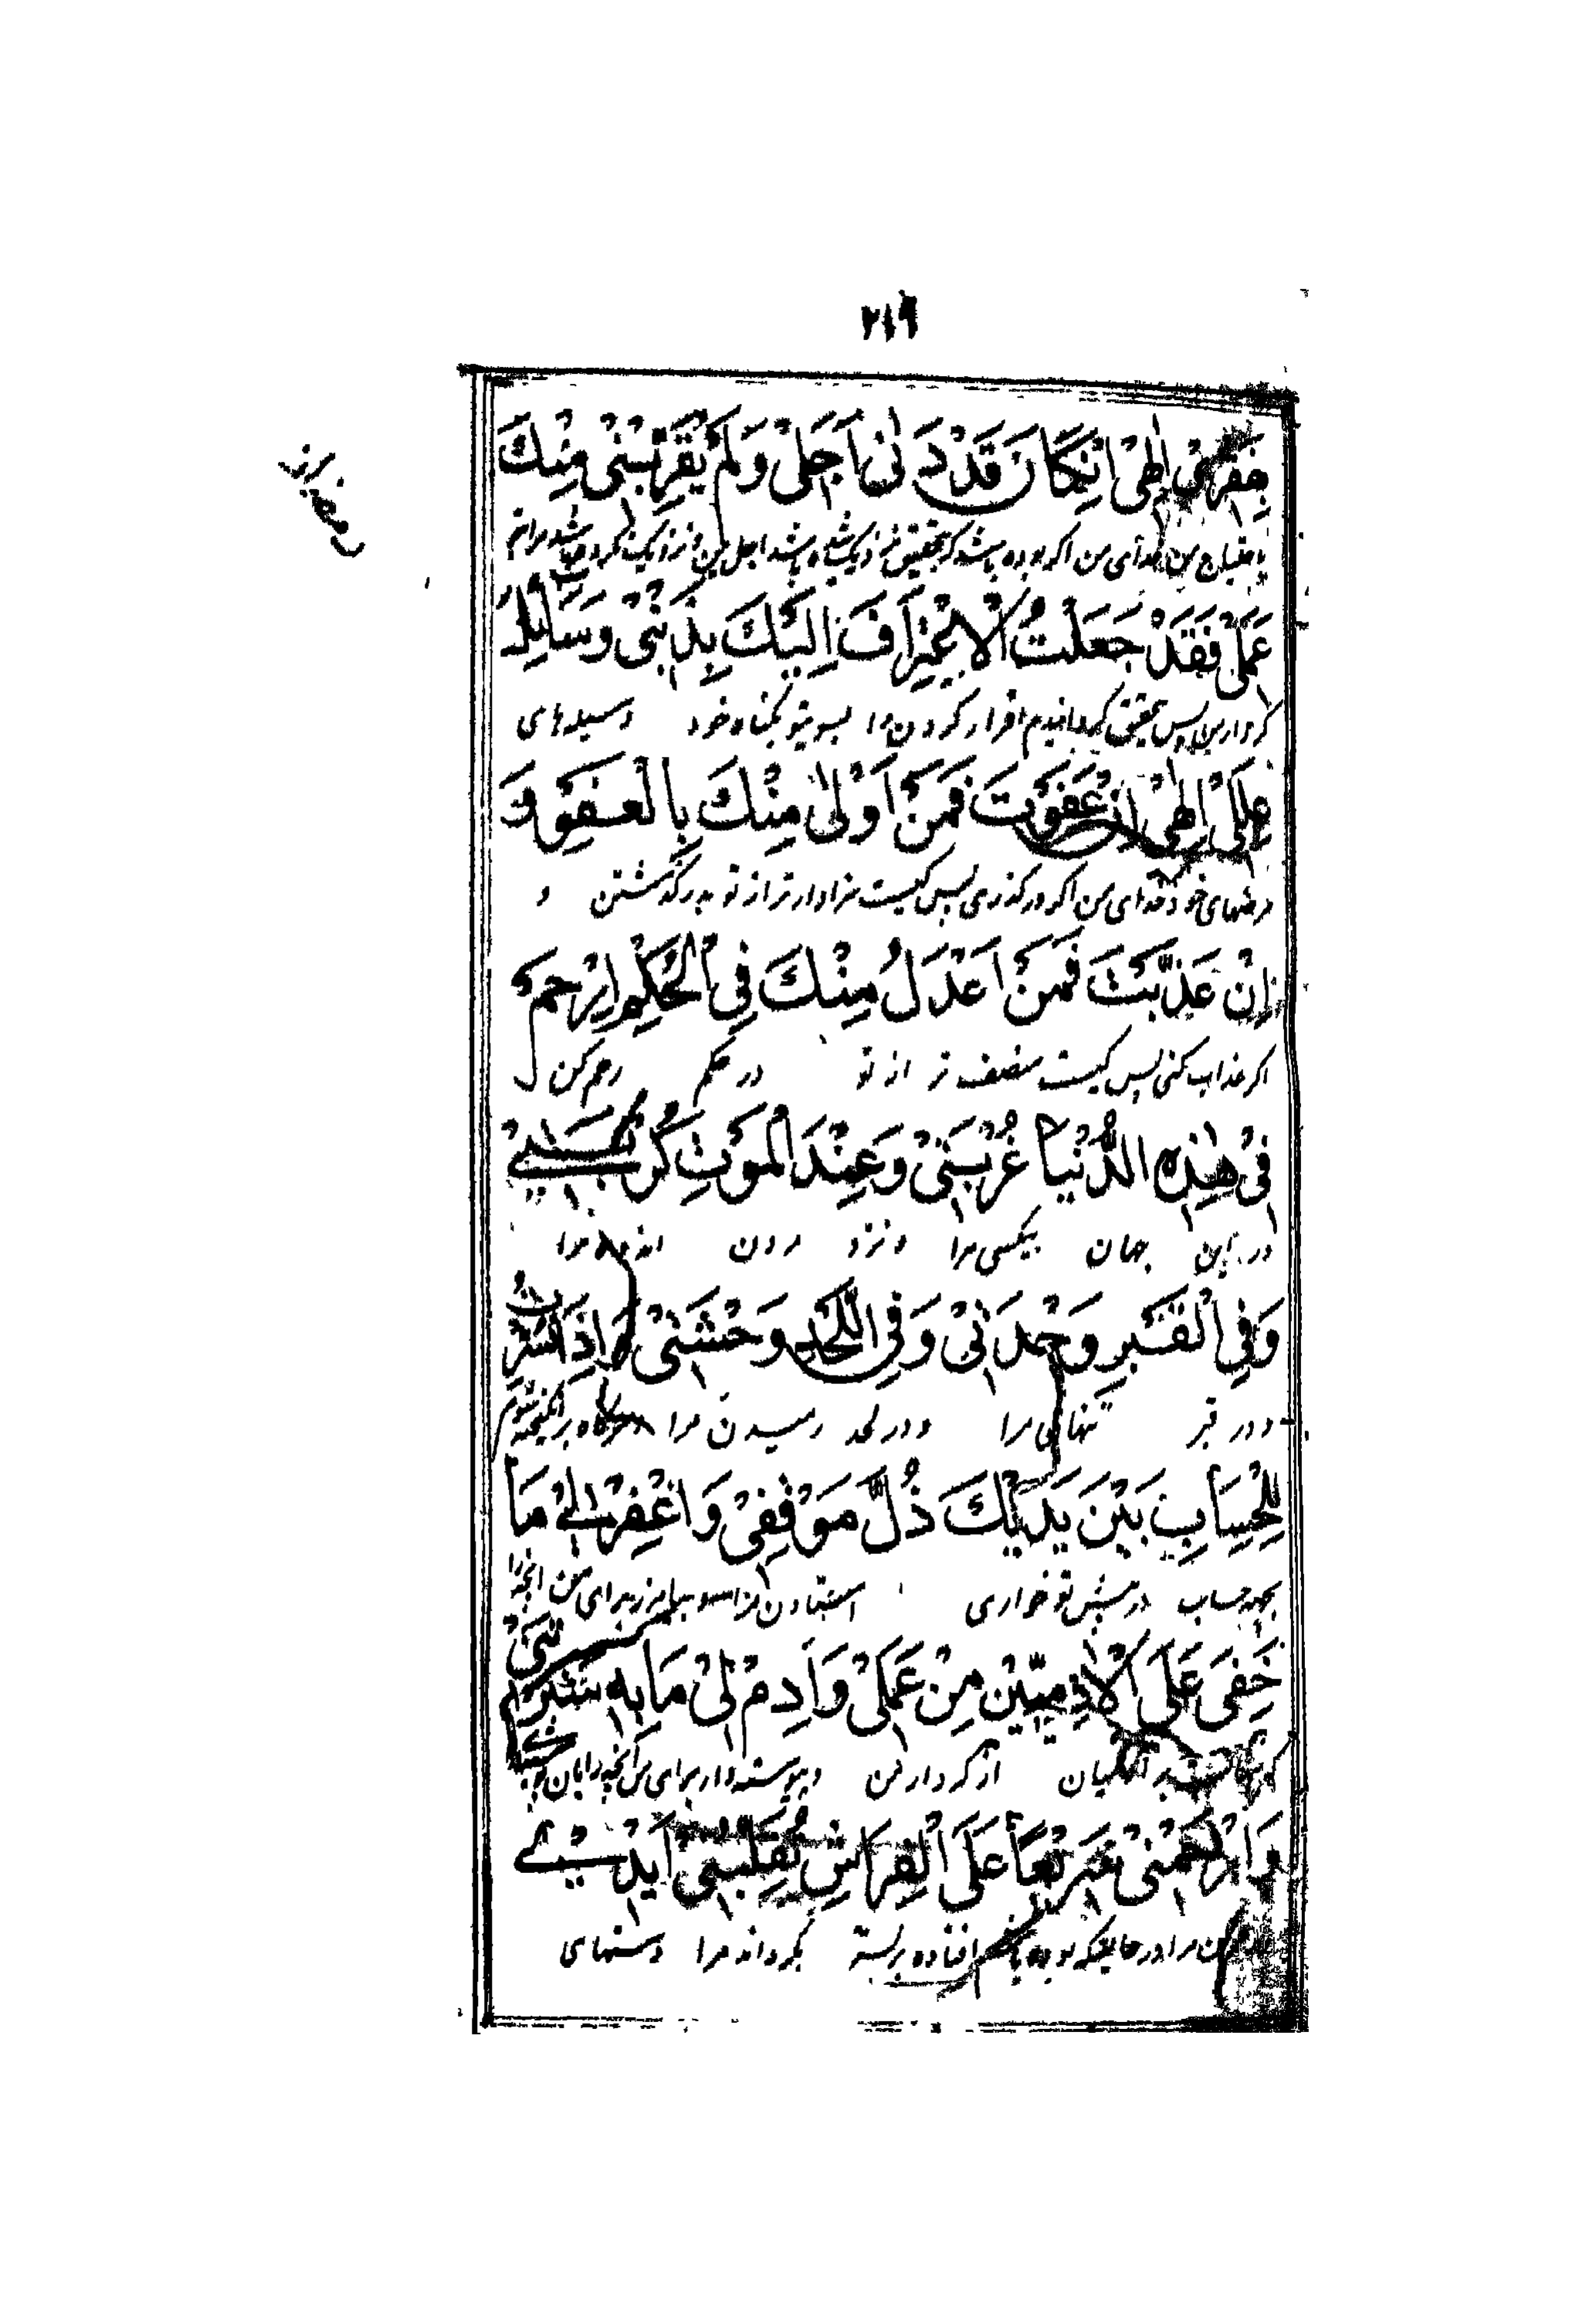 ۲۱۹
اِلٰهِیْ اِنْ کَانَ قَدْ دَنٰی اَجَلِیْ وَلَمْ یُقَرِّبْنِیْ مِنْكَ
خدای من اکر بوده باشد که بتحقیق نزدیک شده باشد اجل من و نزدیک نکرده باشد مرا
عَمَلِیْ فَقَدْ جَعَلْتُ الْاِعْتِرَافَ اِلَیْكَ بِذَنْبِیْ وَسَائِلَ
کردار من پس بتحقیق کردانیدم اقرار کردن را بسوی تو بکناه خود وسیلهای
عِلَلِیْ اِلٰهِیْ اِنْ عَفَوْتَ فَمَنْ اَوْلٰی مِنْكَ بِالْعَفْوِ وَ
مرضهای خود خدای من اکر درکذری پس کیست سزاوارتر از تو بدرکذشتن و
اِنْ عَذَّبْتَ فَمَنْ اَعْدَلُ مِنْكَ فِی الْحُکْمِ اِرْحَمْ
اکر عذاب کنی پس کیست منصف تر از تو در حکم رحم کن
فِیْ هٰذِهِ الدُّنْیَا غُرْبَتِیْ وَعِنْدَ الْمَوْتِ کُرْبَتِیْ
در این جهان بیکسی مرا و نزد مردن اندوه مرا
وَفِی الْقَبْرِ وَحْدَتِیْ وَفِی اللَّحْدِ وَحْشَتِیْ وَاِذَا نُشِرْتُ
و در قبر تنهائی مرا و در لحد رمیدن مرا و هرکاه برانکیخته شوم
لِلْحِسَابِ بَیْنَ یَدَیْكَ ذُلَّ مَوْقِفِیْ وَاغْفِرْ لِیْ مَا
بجهة حساب در پیش تو خواری ایستادن مرا و بیامرز برای من آنچه را
خَفِیَ عَلَی الْاٰدَمِیِّیْنَ مِنْ عَمَلِیْ وَاَدِمْ لِیْ مَا بِهِ سَتَرْتَنِیْ
از کردار من و پیوسته دار برای من آنچه را بان
وَارْحَمْنِیْ صَرِیْعًا عَلَی الْفِرَاشِ تُقَلِّبُنِیْ اَیْدِیْ
مرا در حالیکه بوده باشم افتاده بر بستر بکرداند مرا دستهای